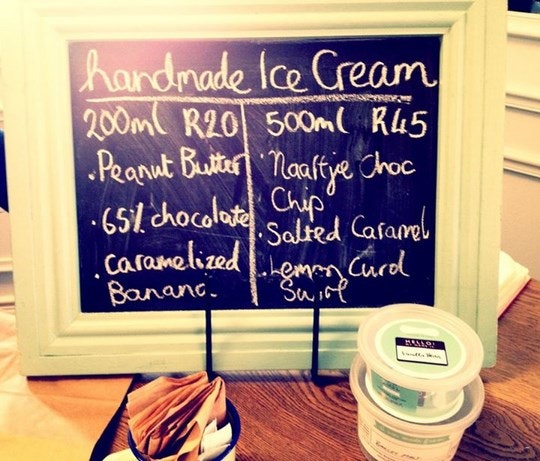 handmade Ice Cream
200ml R20
500ml R45
• Peanut Butter
• 65% chocolate
• Caramelized
Banana.
• Naaftjie Choc
Chip
• Salted Caramel
• Lemon Curd
Swirl
HELLO!
Vanilla Bean